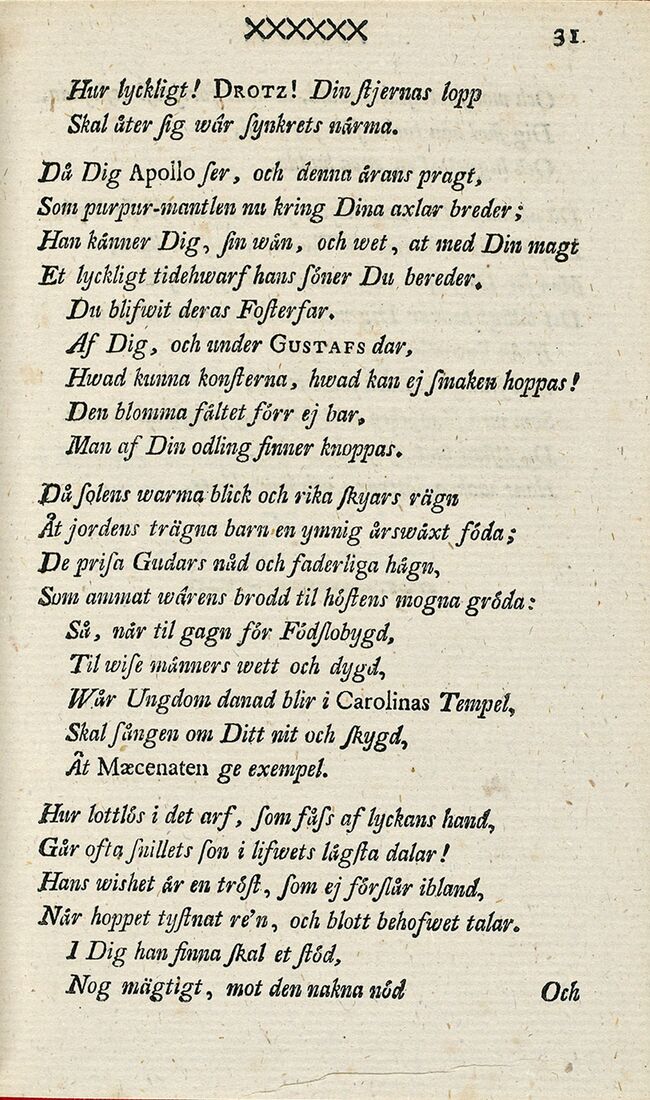 XXXXXX 31.
Hur lyckligt! DROTZ! Din ſtjernas lopp
Skal åter ſig wår ſynkrets nårma.
Då Dig Apollo ſer, och denna årans pragt,
Som purpur-mantlen nu kring Dina axlar breder;
Han kånner Dig, ſin wån, och wet, at med Din magt
Et lyckligt tidehwarf hans ſóner Du bereder.
Du blifwit deras Foſterfar.
Af Dig, och under GUSTAFS dar,
Hwad kunna konſterna, hwad kan ej ſmaken hoppas!
Den blomma fåltet fórr ej bar,
Man af Din odling finner knoppas.
Då ſolens warma blick och rika ſkyars rägn
Åt jordens trägna barn en ymnig årswåxt fóda;
De priſa Gudars nåd och faderliga hågn,
Som ammat wårens brodd til hóſtens mogna gróda:
Så, når til gagn fór Fódſlobygd,
Til wiſe månners wett och dygd,
Wår Ungdom danad blir i Carolinas Tempel,
Skal ſången om Ditt nit och ſkygd,
Åt Mæcenaten ge exempel.
Hur lottlós i det arf, ſom fåſs af lyckans hand,
Går ofta ſnillets ſon i lifwets lågſta dalar!
Hans wishet år en tróſt, ſom ej fórſlår ibland,
Når hoppet tyſtnat re'n, och blott behofwet talar.
I Dig han finna ſkal et ſtód,
Nog mägtigt, mot den nakna nód
Och